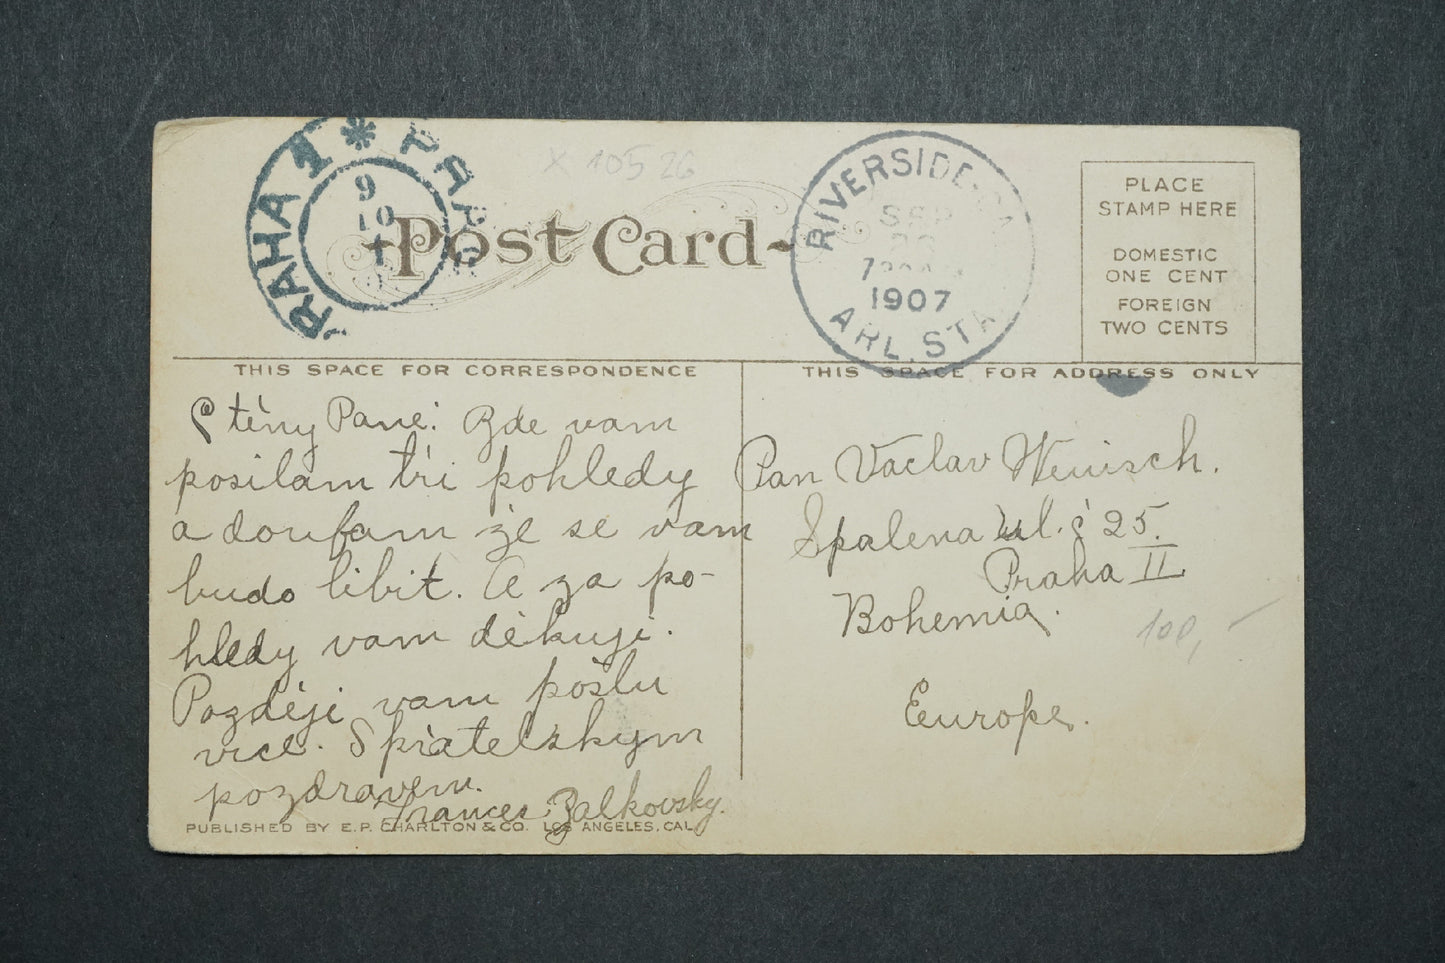 PRAHA 1 * PRAG
9
10
X 105 26
Post Card
RIVERSIDE, CA
SEP
1907
ARL. STA
PLACE
STAMP HERE
DOMESTIC
ONE CENT
FOREIGN
TWO CENTS
THIS SPACE FOR CORRESPONDENCE
THIS SPACE FOR ADDRESS ONLY
Ctěny Pane: Zde vam
posilam tři pohledy
a doufam že se vam
budo libit. A za po-
hledy vam děkuji.
Později vam pošlu
vice. S přatelskym
pozdravem.
Frances Zalkovsky.
PUBLISHED BY E.P. CHARLTON & CO. LOS ANGELES, CAL.
Pan Vaclav Wenisch.
Spalena ul. č 25.
Praha II
Bohemia.
100,-
Europe.